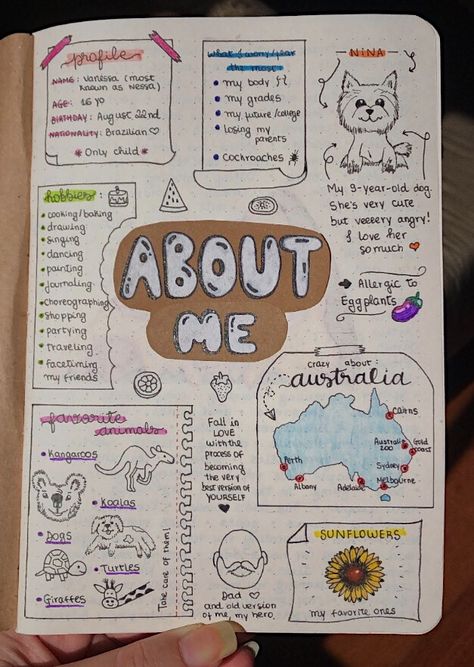 profile
NAME: Vanessa (most
known as Nessa)
AGE: 16 yo
BIRTHDAY: August 22nd
NATIONALITY: Brazilian
Only child
what I worry/fear
the most
my body
my grades
my future/college
losing my
parents
cockroaches
NiNA
My 9-year-old dog.
She's very cute
but veeeery angry!
I love her
so much
Allergic to
Eggplants
hobbies:
cooking/baking
drawing
singing
dancing
painting
journaling
choreographing
shopping
partying
traveling
facetiming
my friends
ABOUT
ME
crazy about:
australia
Cairns
Australia
zoo
Gold
coast
Perth
Sydney
Albany
Adelaide
Melbourne
favorite
animals
Kangaroos
Koalas
Dogs
Turtles
Giraffes
Take care of them!
Fall in
LOVE
with the
process of
becoming
the very
best version of
YOURSELF
Dad
and old version
of me, my hero.
SUNFLOWERS
my favorite ones